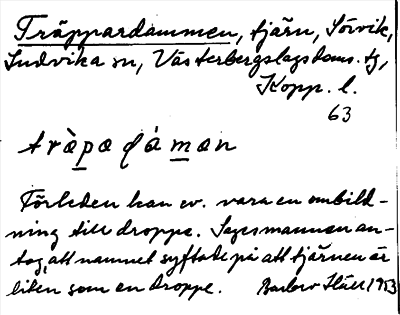 Träppardammen, tjärn, Sörvik,
Ludvika sn, Västerbergslags doms. tg,
Kopp. l.
63
tràpadámən
Förleden kan ev. vara en ombild-
ning till droppe. Sagesmannen an-
tog, att namnet syftade på att tjärnen är
liten som en droppe. Barbro 1953